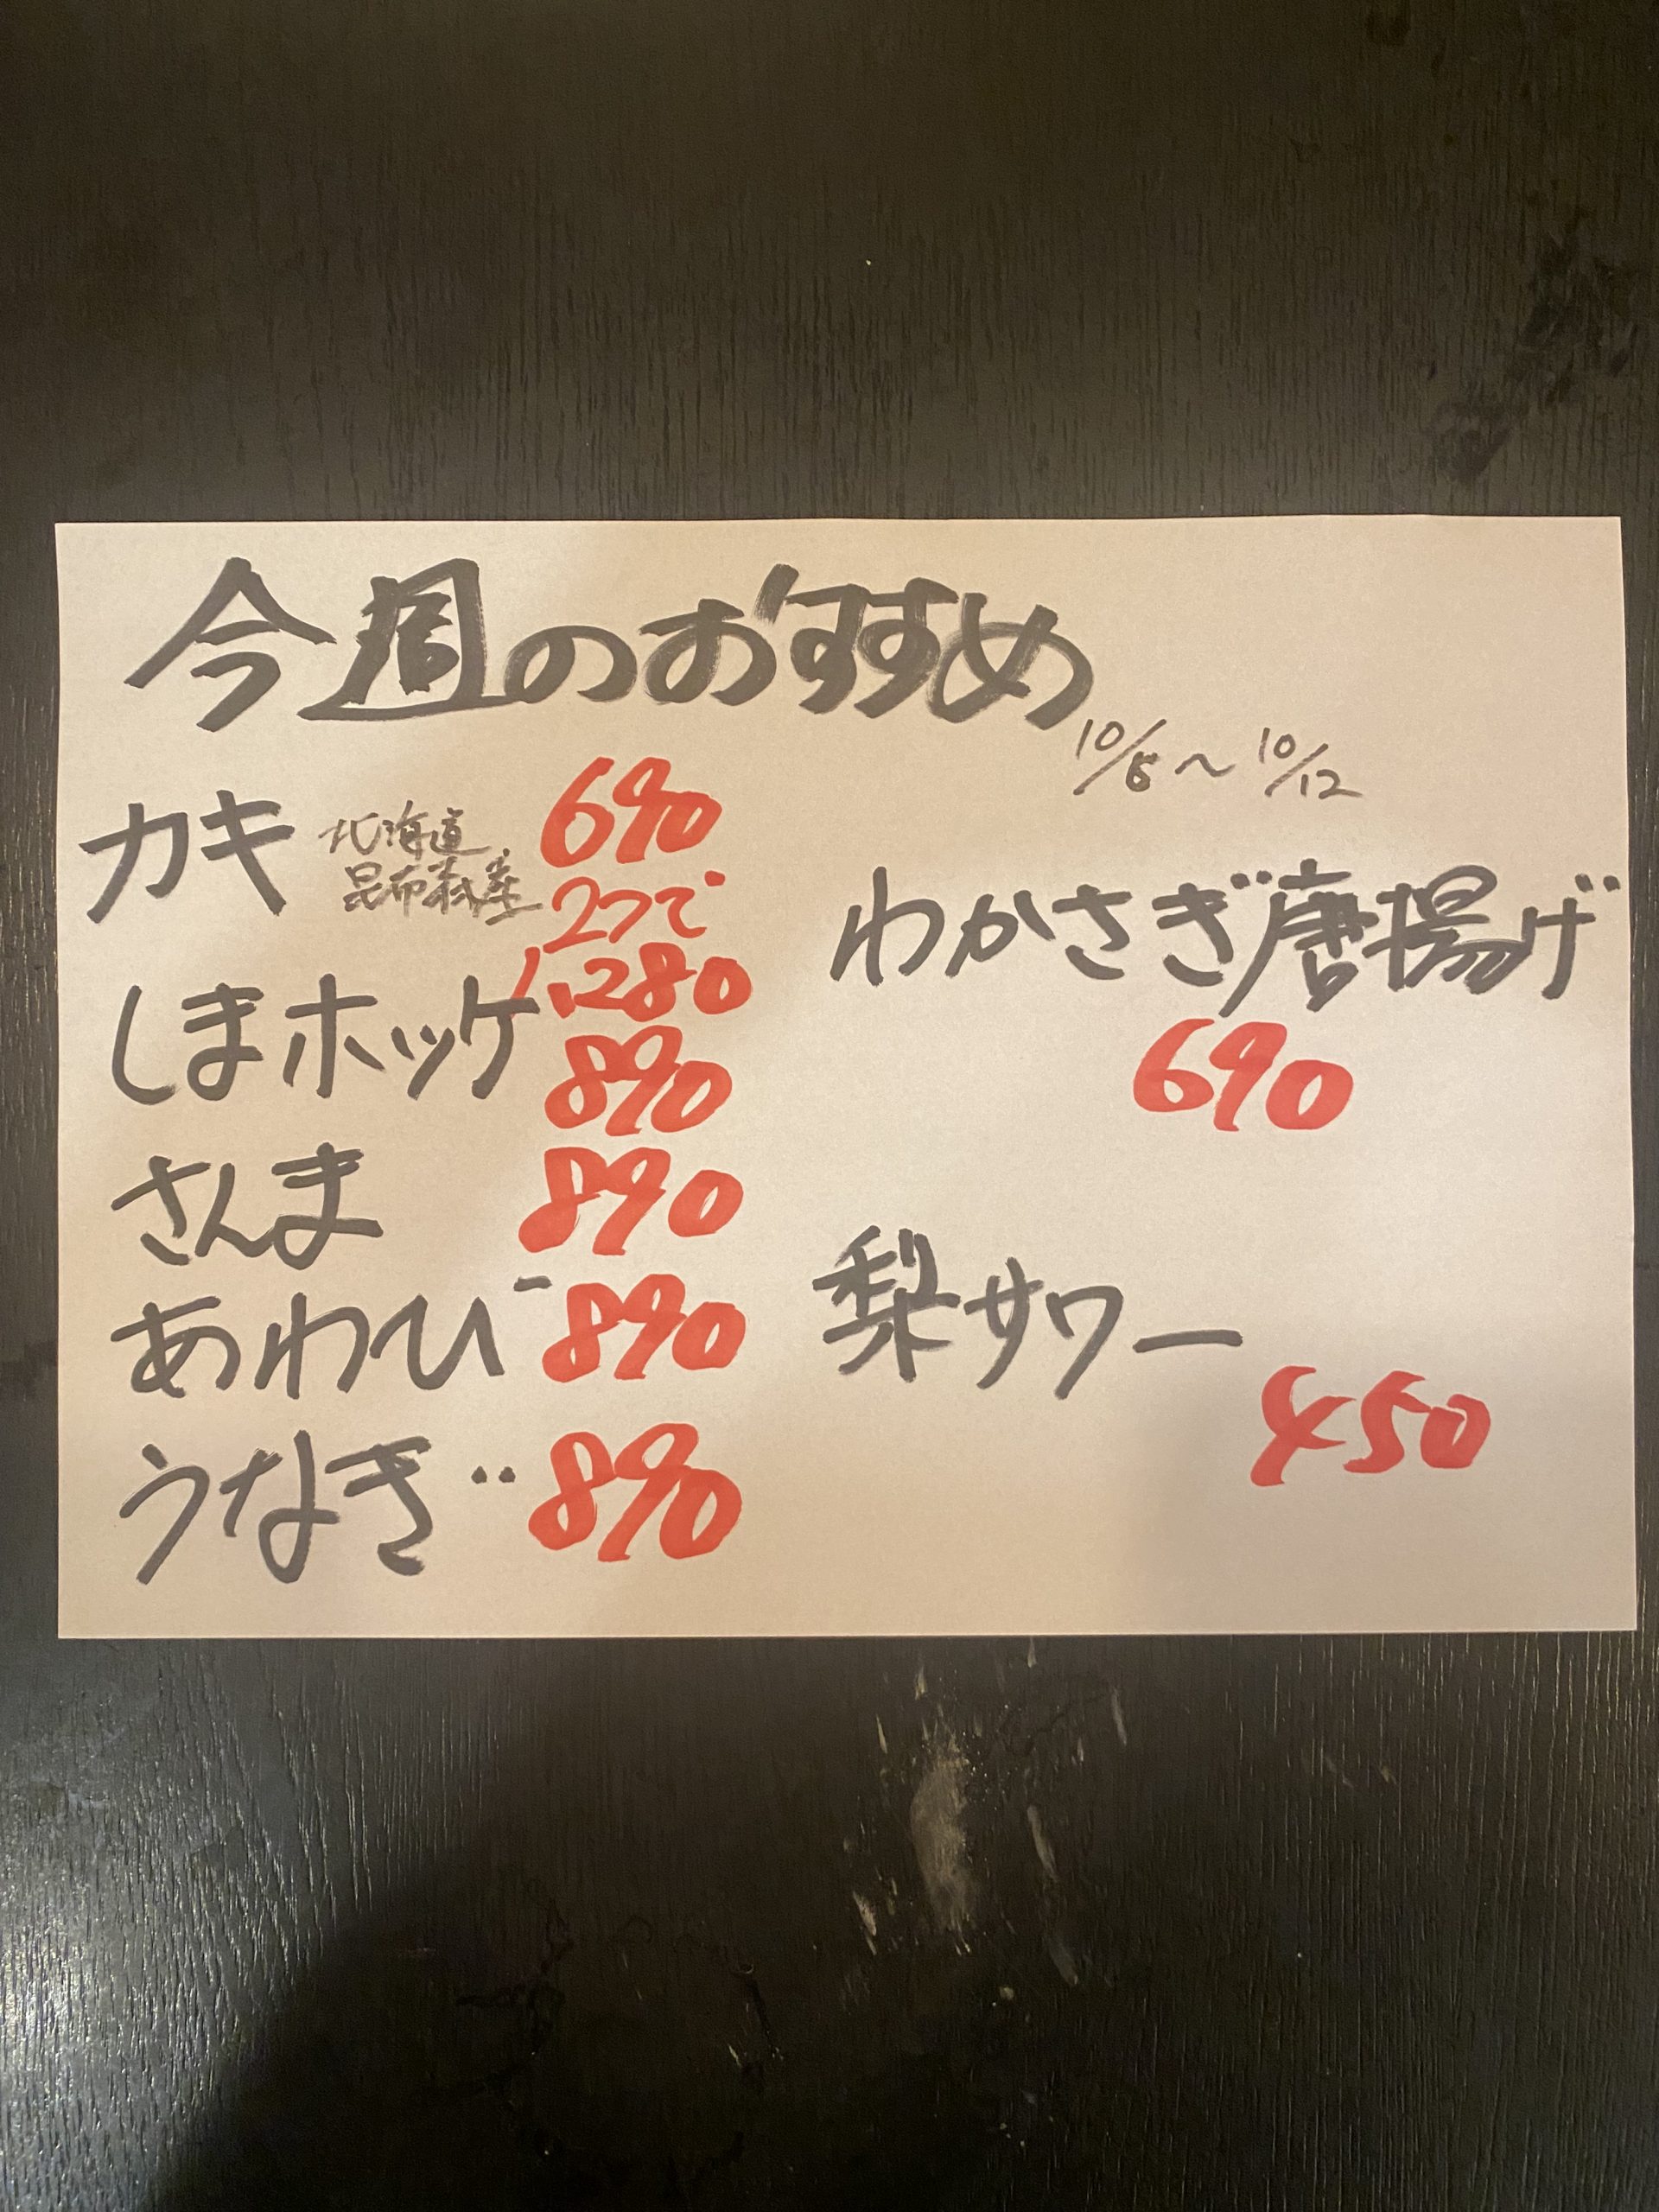 今週のおすすめ
10/5〜10/12
カキ 北海道 690
昆布森産 2つで
1,280
しまホッケ 890
さんま 890
あわび 890
うなぎ 890
わかさぎ唐揚げ
690
梨サワー
450